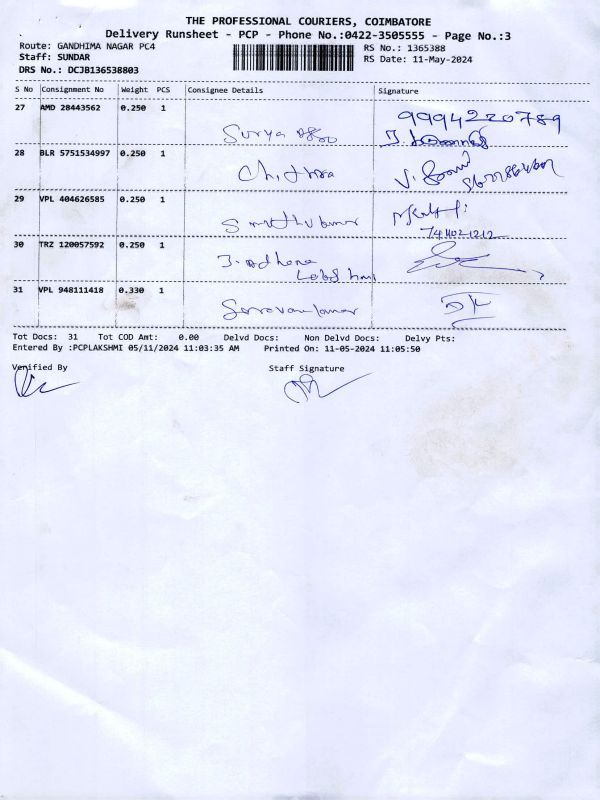 THE PROFESSIONAL COURIERS, COIMBATORE
Delivery Runsheet - PCP - Phone No.:0422-3505555 - Page No.:3
Route: GANDHIMA NAGAR PC4 RS No.: 1365388
Staff: SUNDAR RS Date: 11-May-2024
DRS No.: DCJB136538803
S No Consignment No Weight PCS Consignee Details Signature
27 AMD 28443562 0.250 1
Surya 9994220789
28 BLR 5751534997 0.250 1
Chithra
29 VPL 404626585 0.250 1
30 TRZ 120057592 0.250 1
31 VPL 948111418 0.330 1
Saravanakumar
Tot Docs: 31 Tot COD Amt: 0.00 Delvd Docs: Non Delvd Docs: Delvy Pts:
Entered By :PCPLAKSHMI 05/11/2024 11:03:35 AM Printed On: 11-05-2024 11:05:50
Verified By Staff Signature